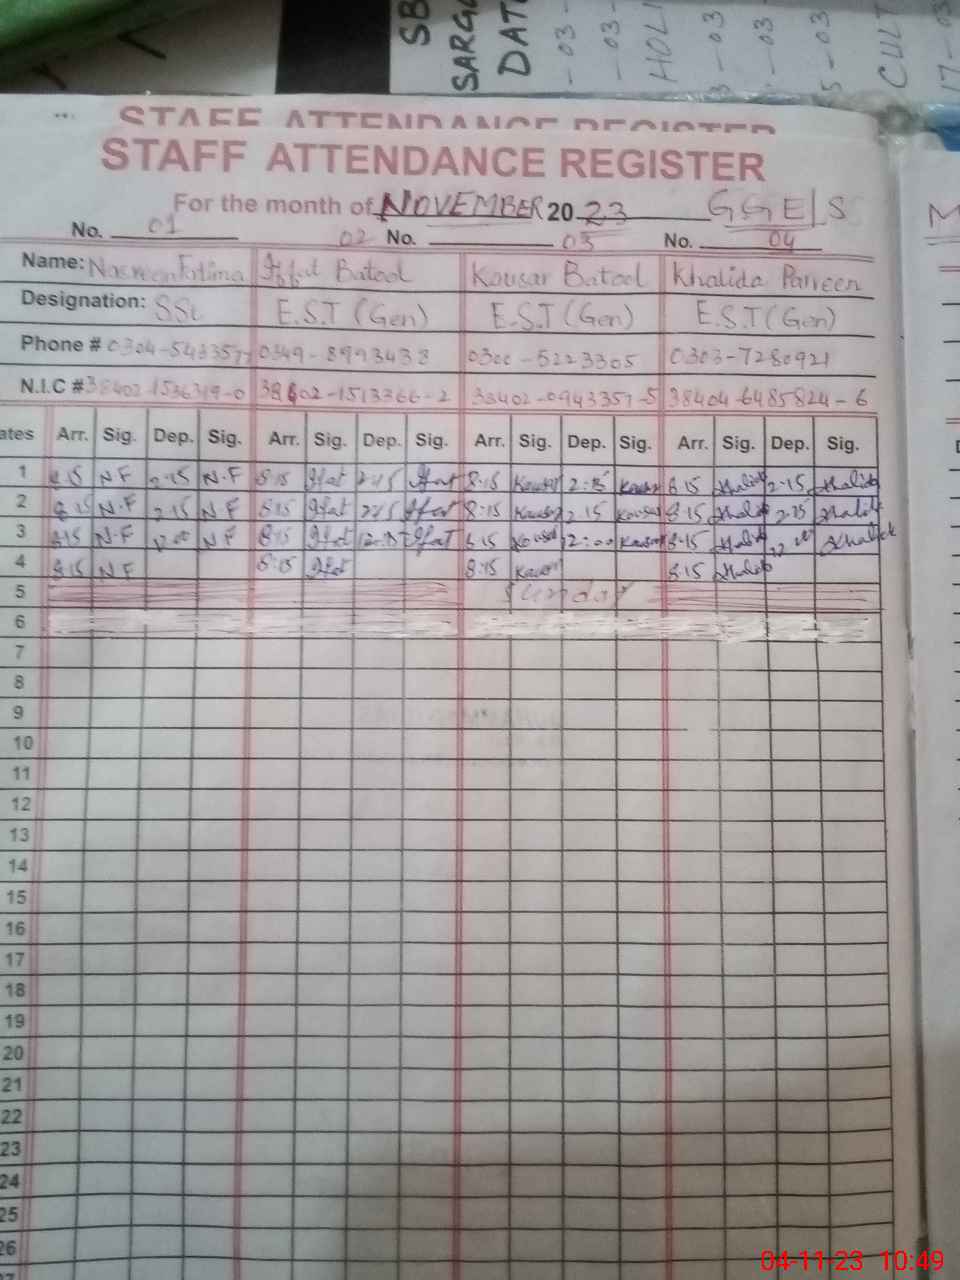 SB
SARG
DAT
HOLI
CULT
STAFF ATTENDANCE REGISTER
STAFF ATTENDANCE REGISTER
For the month of NOVEMBER 2023 GGE/S
No. 01 02 No. 03 No. 04
Name: Nasreen Fatima Iffat Batool Kousar Batool Khalida Parveen
Designation: E.S.T (Gen) E.S.T (Gen) E.S.T (Gen)
Phone # 0304-5433577 0349-8993433 0300-5223305 0303-7280921
N.I.C # 38402-1536319-0 38402-1513366-2 38402-0943357-5 38404-6485824-6
ates Arr. Sig. Dep. Sig. Arr. Sig. Dep. Sig. Arr. Sig. Dep. Sig. Arr. Sig. Dep. Sig.
1 8.15 N.F 2.15 N.F 8:15 Iffat 2:15 Iffat 8:15 Kousar 2:15 Kousar 8.15 Khalida 2.15 Khalida
2 8.15 N.F 2.15 N.F 8:15 Iffat 2:15 Iffat 8:15 Kousar 2.15 Kousar 8.15 Khalida 2.15 Khalida
3 8.15 N.F N.F 8:15 Iffat Iffat 8.15 Kousar 12:00 Kousar 8.15 Khalida 12.00 Khalida
4 8.15 N.F 8:15 Iffat 8:15 Kousar 8.15 Khalida
5 Sunday
6
7
8
9
10
11
12
13
14
15
16
17
18
19
20
21
22
23
24
25
26
04-11-23 10:49